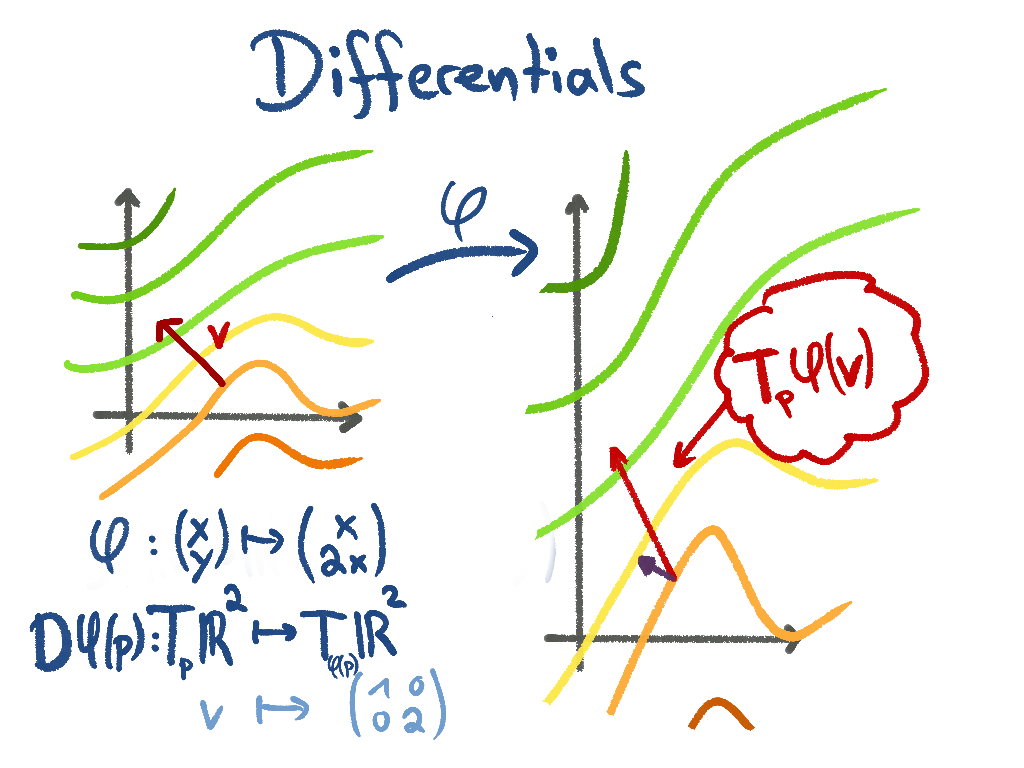 Differentials
φ
v
T_p φ(v)
φ : (x y) ↦ (x 2x)
Dφ(p): T_p ℝ² ↦ T_φ(p) ℝ²
v ↦ (1 0 0 2)